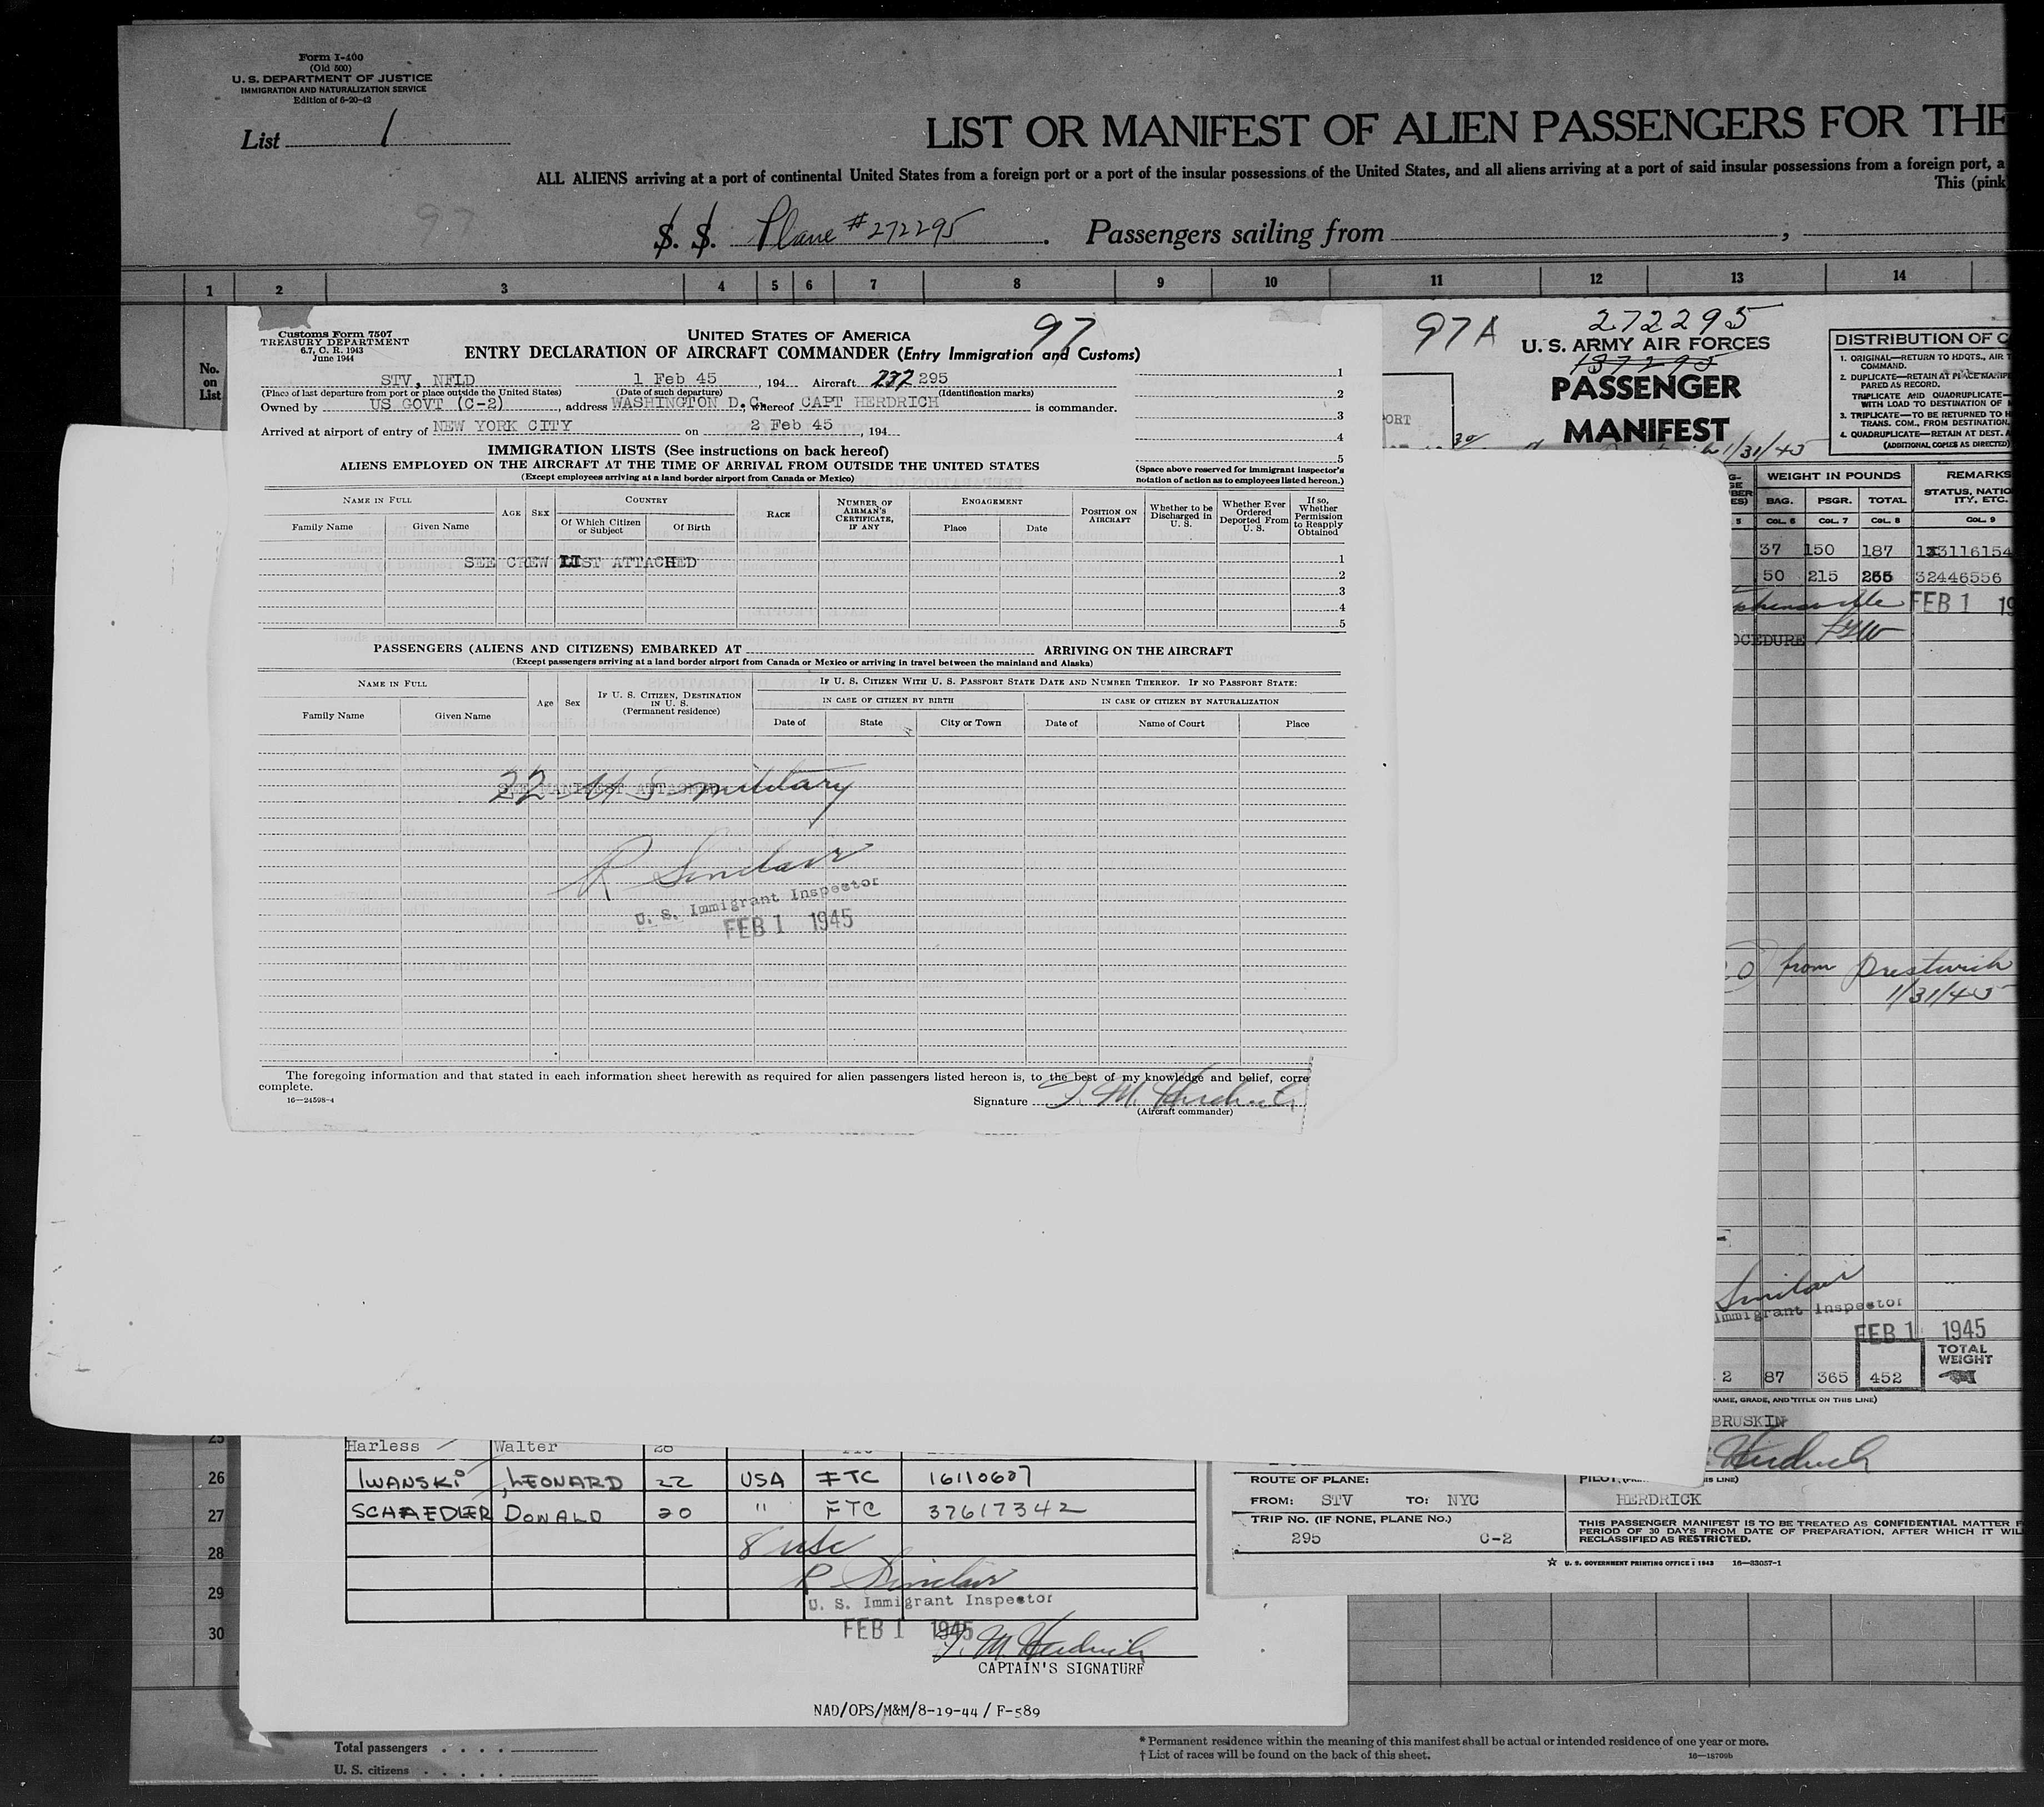 Form I-400
(Old 500)
U. S. DEPARTMENT OF JUSTICE
IMMIGRATION AND NATURALIZATION SERVICE
Edition of 6-20-42
List 1
LIST OR MANIFEST OF ALIEN PASSENGERS FOR THE
ALL ALIENS arriving at a port of continental United States from a foreign port or a port of the insular possessions of the United States, and all aliens arriving at a port of said insular possessions from a foreign port, a
This (pink
97
S. S. Plane #272295. Passengers sailing from ,
1 2 3 4 5 6 7 8 9 10 11 12 13 14
No. on List
Customs Form 7507
TREASURY DEPARTMENT
6.7, C. R. 1943
June 1944
UNITED STATES OF AMERICA
97
ENTRY DECLARATION OF AIRCRAFT COMMANDER (Entry Immigration and Customs)
STV, NFLD 1 Feb 45, 194 Aircraft 272 295
(Place of last departure from port or place outside the United States) (Date of such departure) (Identification marks)
Owned by US GOVT (C-2), address WASHINGTON D.C. whereof CAPT HERDRICH is commander.
Arrived at airport of entry of NEW YORK CITY on 2 Feb 45, 194
1
2
3
4
5
(Space above reserved for immigrant inspector's notation of action as to employees listed hereon.)
IMMIGRATION LISTS (See instructions on back hereof)
ALIENS EMPLOYED ON THE AIRCRAFT AT THE TIME OF ARRIVAL FROM OUTSIDE THE UNITED STATES
(Except employees arriving at a land border airport from Canada or Mexico)
NAME IN FULL
Family Name Given Name
AGE SEX
COUNTRY
Of Which Citizen or Subject Of Birth
RACE
NUMBER OF AIRMAN'S CERTIFICATE, IF ANY
ENGAGEMENT
Place Date
POSITION ON AIRCRAFT
Whether to be Discharged in U. S.
Whether Ever Ordered Deported From U. S.
If so, Whether Permission to Reapply Obtained
SEE CREW LIST ATTACHED
1
2
3
4
5
PASSENGERS (ALIENS AND CITIZENS) EMBARKED AT ARRIVING ON THE AIRCRAFT
(Except passengers arriving at a land border airport from Canada or Mexico or arriving in travel between the mainland and Alaska)
NAME IN FULL
Family Name Given Name
Age Sex
IF U. S. CITIZEN, DESTINATION IN U. S.
(Permanent residence)
IF U. S. CITIZEN WITH U. S. PASSPORT STATE DATE AND NUMBER THEREOF. IF NO PASSPORT STATE:
IN CASE OF CITIZEN BY BIRTH IN CASE OF CITIZEN BY NATURALIZATION
Date of State City or Town Date of Name of Court Place
SEE MANIFEST ATTACHED
22 US military
R Sinclair
U. S. Immigrant Inspector
FEB 1 1945
The foregoing information and that stated in each information sheet herewith as required for alien passengers listed hereon is, to the best of my knowledge and belief, corre
complete.
16—24598-4
Signature T. M. Herdrich
(Aircraft commander)
97A
272295
U. S. ARMY AIR FORCES
137295
PASSENGER
MANIFEST
1/31/45
PORT
DISTRIBUTION OF C
1. ORIGINAL—RETURN TO HDQTS., AIR T
COMMAND.
2. DUPLICATE—RETAIN AT PLACE MANIFE
PARED AS RECORD.
TRIPLICATE AND QUADRUPLICATE—
WITH LOAD TO DESTINATION OF
3. TRIPLICATE—TO BE RETURNED TO H
TRANS. COM., FROM DESTINATION.
4. QUADRUPLICATE—RETAIN AT DEST. A
(ADDITIONAL COPIES AS DIRECTED)
WEIGHT IN POUNDS REMARKS
BAG. PSGR. TOTAL STATUS, NATIO
ITY, ETC.
5 COL. 6 COL. 7 COL. 8 COL. 9
37 150 187 13116154
50 215 265 32446556
FEB 1 19
OCEDURE
from Prestwick
1/31/45
Sinclair
Immigrant Inspector
FEB 1 1945
TOTAL WEIGHT
2 87 365 452
NAME, GRADE, AND TITLE ON THIS LINE)
BRUSKIN
Herdrich
ROUTE OF PLANE:
FROM: STV TO: NYC
HERDRICK
TRIP No. (IF NONE, PLANE No.)
295 C-2
THIS PASSENGER MANIFEST IS TO BE TREATED AS CONFIDENTIAL MATTER F
PERIOD OF 30 DAYS FROM DATE OF PREPARATION, AFTER WHICH IT WIL
RECLASSIFIED AS RESTRICTED.
☆ U. S. GOVERNMENT PRINTING OFFICE: 1943 16—33057-1
25 Harless Walter
26 IWANSKI, LEONARD 22 USA FTC 16110607
27 SCHAEDLER DONALD 20 " FTC 37617342
28 8 usc
29 R Sinclair
U. S. Immigrant Inspector
30 FEB 1 1945
T. M. Herdrich
CAPTAIN'S SIGNATURE
NAD/OPS/M&M/8-19-44/F-589
Total passengers . . . .
U. S. citizens . . . . .
* Permanent residence within the meaning of this manifest shall be actual or intended residence of one year or more.
† List of races will be found on the back of this sheet.
16—18709b